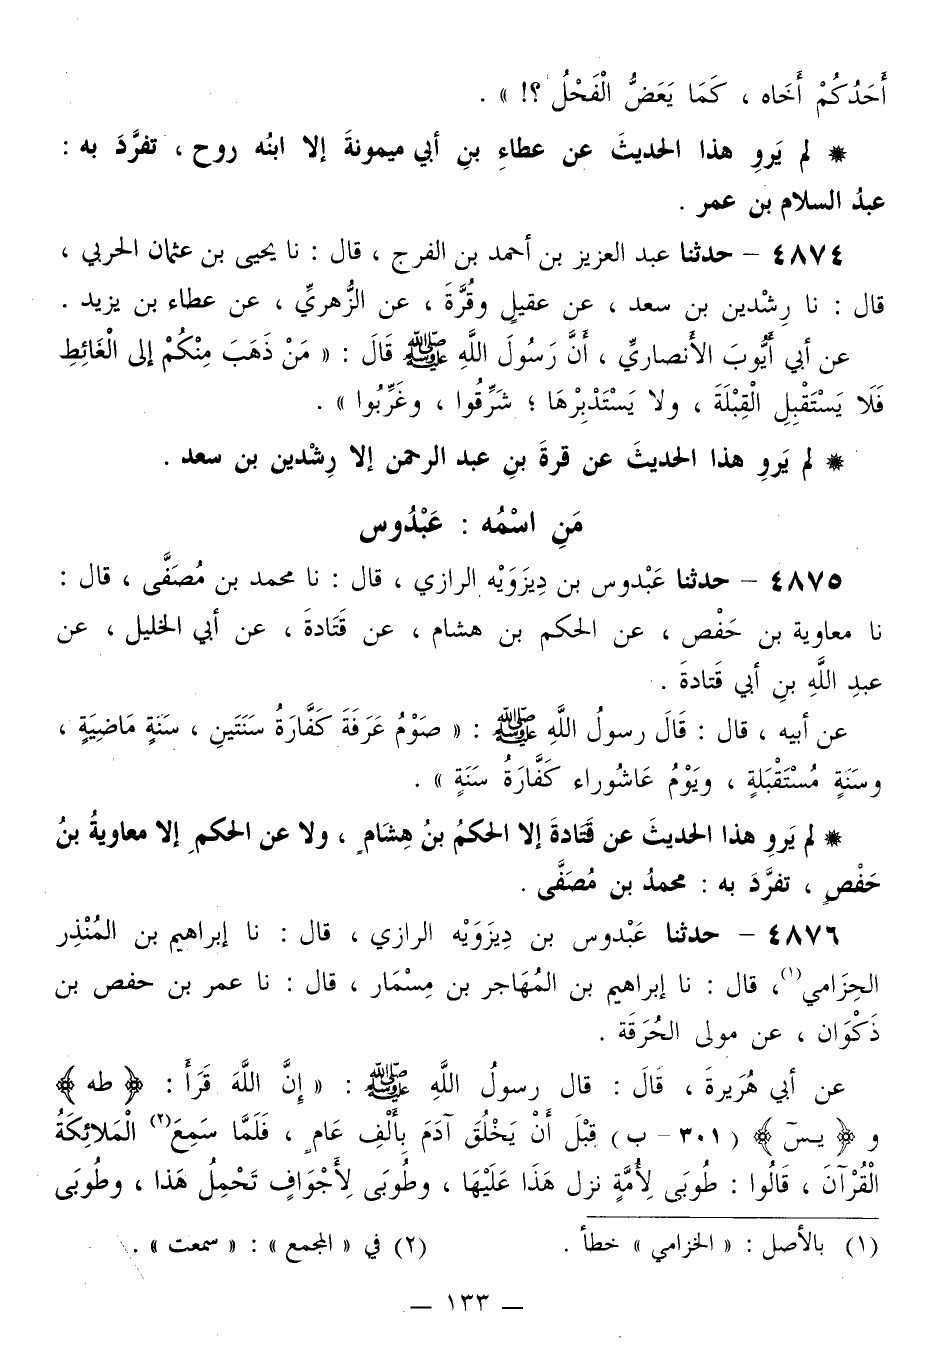 أَحَدُكُمْ أَخَاه ، كَمَا يَعَضُّ الْفَحْلُ ؟! » .
* لم يَروِ هذا الحديثَ عن عطاءِ بنِ أبي ميمونةَ إلا ابنُه روح ، تفرَّدَ به :
عبدُ السلام بن عمر .
٤٨٧٤ – حدثنا عبد العزيز بن أحمد بن الفرج ، قال : نا يحيى بن عثمان الحربي ،
قال : نا رِشْدين بن سعد ، عن عقيلٍ وقُرَّةَ ، عن الزُّهريِّ ، عن عطاء بن يزيد .
عن أبي أَيُّوبَ الأَنصاريِّ ، أَنَّ رَسُولَ اللَّهِ ﷺ قَالَ : « مَنْ ذَهَبَ مِنْكُمْ إلى الْغَائِطِ
فَلَا يَسْتَقْبِلِ الْقِبْلَةَ ، ولا يَسْتَدْبِرْهَا ؛ شَرِّقُوا ، وغَرِّبُوا » .
* لم يَروِ هذا الحديثَ عن قرةَ بنِ عبد الرحمن إلا رِشْدين بن سعد .
مَنِ اسْمُه : عَبْدُوس
٤٨٧٥ – حدثنا عَبْدوس بن دِيزَوَيْه الرازي ، قال : نا محمد بن مُصَفَّى ، قال :
نا معاوية بن حَفْص ، عن الحكم بن هشام ، عن قَتَادةَ ، عن أبي الخليل ، عن
عبدِ اللَّهِ بنِ أبي قَتادةَ .
عن أبيه ، قال : قَالَ رسولُ اللَّهِ ﷺ : « صَوْمُ عَرَفَةَ كَفَّارَةُ سَنَتَينِ ، سَنَةٍ مَاضِيَةٍ ،
وسَنَةٍ مُسْتَقْبَلةٍ ، ويَوْمُ عَاشُوراء كَفَّارَةُ سَنَةٍ » .
* لم يَروِ هذا الحديثَ عن قَتَادةَ إلا الحكمُ بنُ هِشَامٍ ، ولا عن الحكمِ إلا معاويةُ بنُ
حَفْصٍ ، تفرَّدَ به : محمدُ بن مُصَفَّى .
٤٨٧٦ – حدثنا عَبْدوس بن دِيزَوَيْه الرازي ، قال : نا إبراهيم بن المُنْذِر
الحِزَامي(١)، قال : نا إبراهيم بن المُهَاجر بن مِسْمَار ، قال : نا عمر بن حفص بن
ذَكْوَان ، عن مولى الحُرَقَة .
عن أبي هُرَيرةَ ، قَالَ : قال رسولُ اللَّهِ ﷺ : « إنَّ اللَّهَ قَرَأَ : ﴿ طه ﴾
و ﴿ يسٓ ﴾ ( ٣٠١ – ب ) قَبْلَ أَنْ يَخْلُقَ آدَمَ بِأَلْفِ عَامٍ ، فَلَمَّا سَمِعَ(٢) الْمَلائِكَةُ
الْقُرْآنَ ، قَالُوا : طُوبَى لِأُمَّةٍ نزل هَذَا عَلَيْهَا ، وطُوبَى لِأَجْوَافٍ تَحْمِلُ هَذا ، وطُوبَى
(١) بالأصل : « الخزامي » خطأ . (٢) في « المجمع » : « سمعت » .
— ١٣٣ —